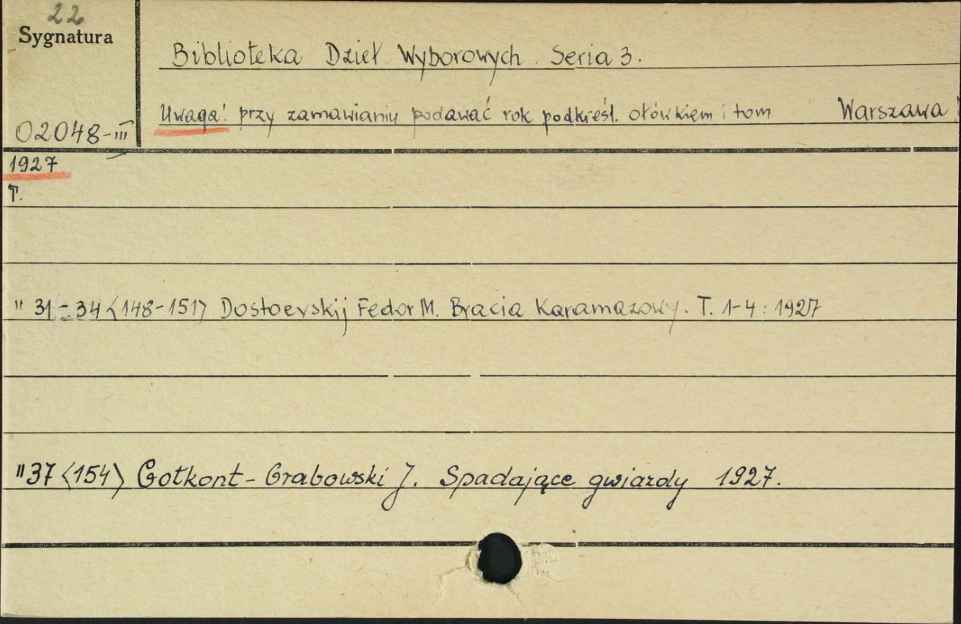 22
Sygnatura
Biblioteka Dzieł Wyborowych. Seria 3.
02048-III
Uwaga! przy zamawianiu podawać rok podkreśl. ołówkiem i tom Warszawa
1927
T.
" 31-34 <148-151> Dostoevskij Fedor M. Bracia Karamazowy. T. 1-4: 1927
"37 <154> Gotkont-Grabowski J. Spadające gwiazdy 1927.